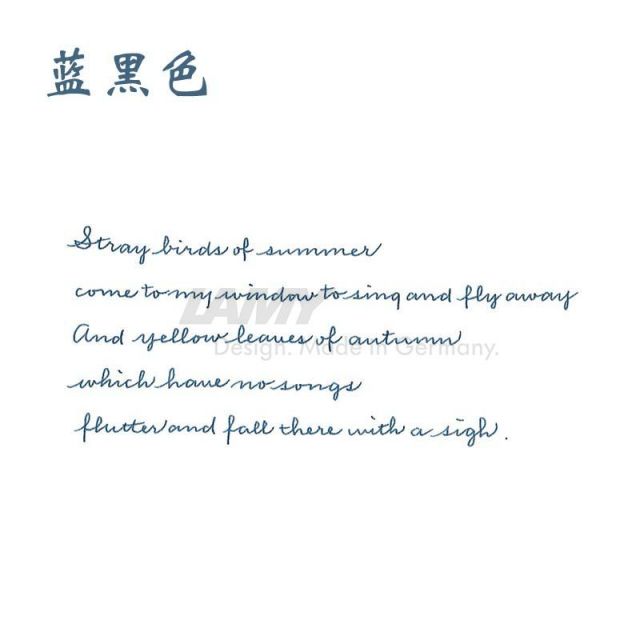 蓝黑色
Stray birds of summer
come to my window to sing and fly away
LAMY
And yellow leaves of autumn
Design. Made in Germany.
which have no songs
flutter and fall there with a sigh.